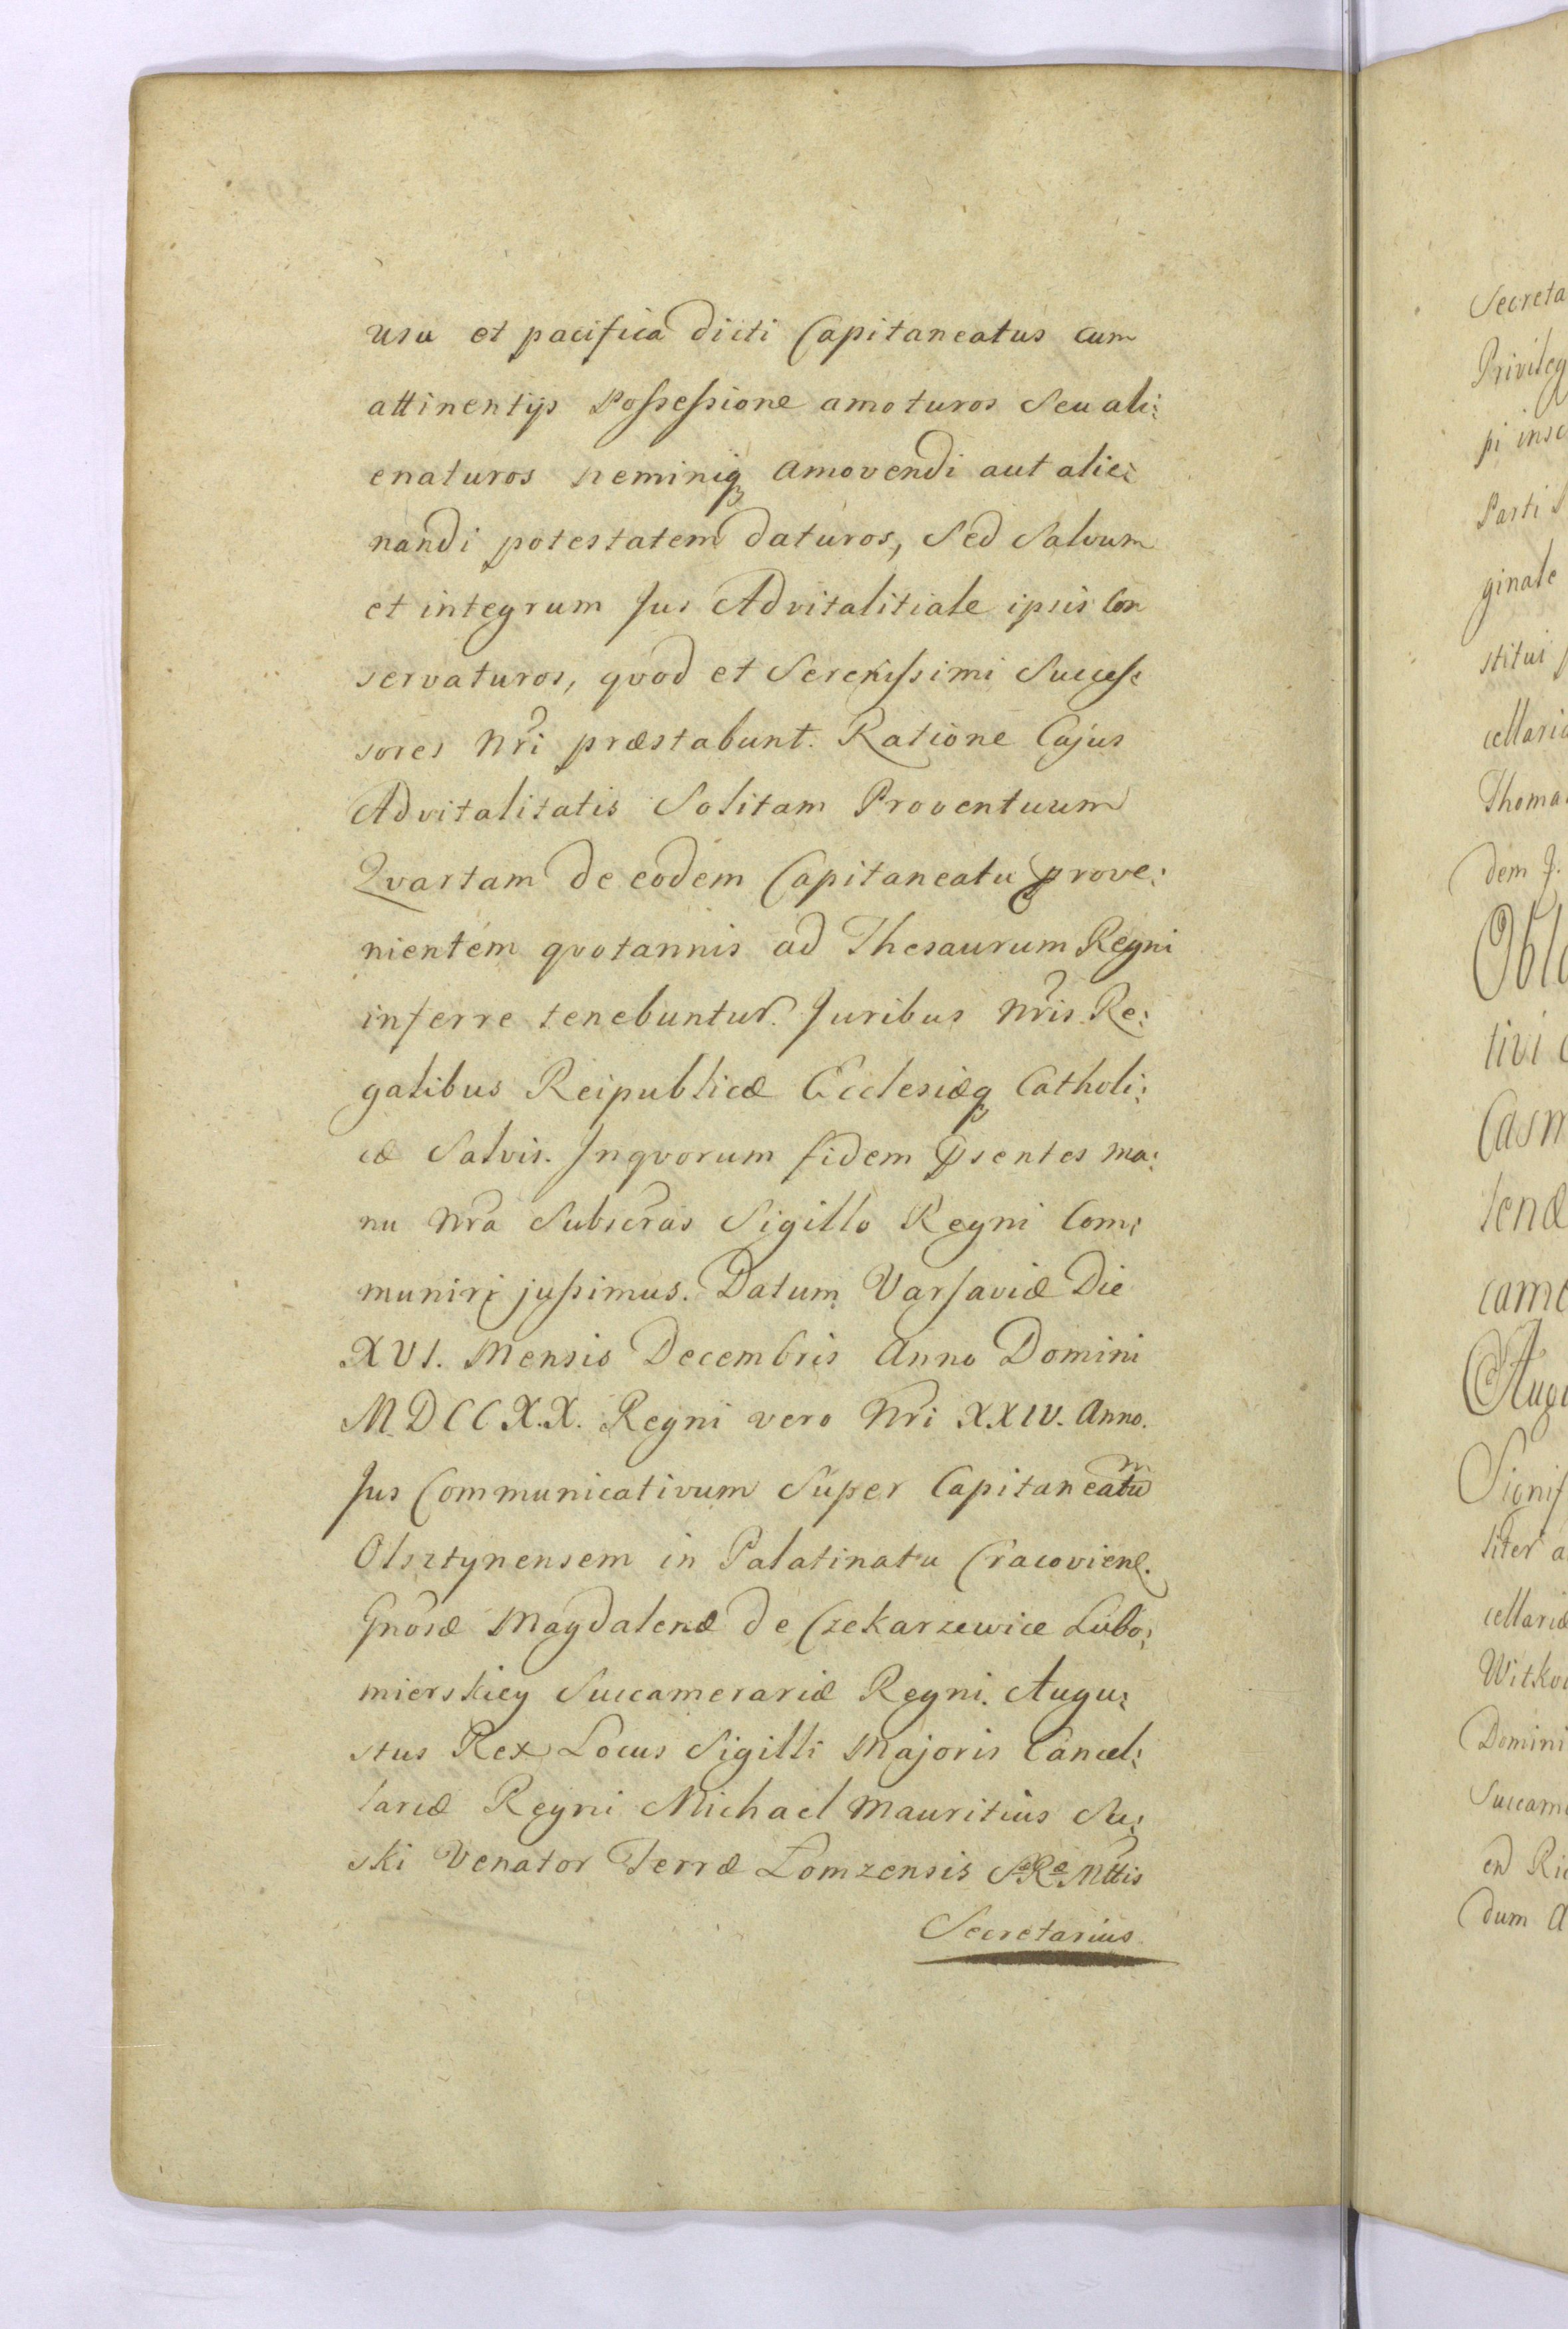 usu et pacifica dicti Capitaneatus cum
attinentijs Possessione amoturos Seu ali:
enaturos neminiq₃ amovendi aut alie:
nandi potestatem daturos, Sed Salvum
et integrum Jus Advitalitiale ipsis Con
servaturos, qvod et Serenissimi Succes:
sores Nri præstabunt. Ratione Cujus
Advitalitatis Solitam Proventuum
Qvartam de eodem Capitaneatu prove:
nientem qvotannis ad Thesaurum Regni
inferre tenebuntur. Juribus Nris Re:
galibus Reipublicæ Ecclesiæq₃ Catholi:
cæ Salvis. Inqvorum fidem Psentes ma:
nu Nra Subscras Sigillo Regni Com:
muniri jussimus. Datum Varsaviæ Die
XVI. Mensis Decembris Anno Domini
MDCCX.X. Regni vero Nri XXIV. Anno.
Jus Communicativum Super Capitaneatu
Olsztynensem in Palatinatu Cracovien.
Gnosæ Magdalenæ de Czekarzewice Lubo:
mierskiey Succamerariæ Regni. Augu:
stus Rex Locus Sigilli Majoris Cancel:
lariæ Regni Michael Mauritius Su:
ski Venator Terræ Lomzensis SRæ Mttis
Secretarius
Secreta
Privileg
pi insc
Parti
ginale
stitui
cellaria
Thoma
dem J.
Obla
tivi
Casm
tenæ
came
Augu
Signif
liter a
cellariæ
Witko
Domini
Succam
en Ri
dum A